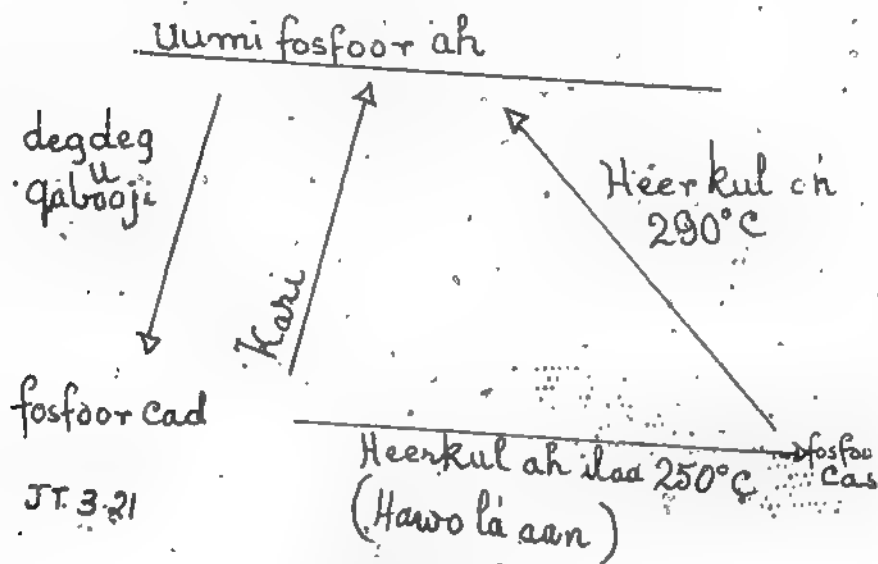 Uumi fosfoor ah
degdeg
u
qabooji
Kari
Heerkul ah
290°C
fosfoor cad
fosfoo
cas
Heerkul ah ilaa 250°C
(Hawo la'aan)
JT. 3.21